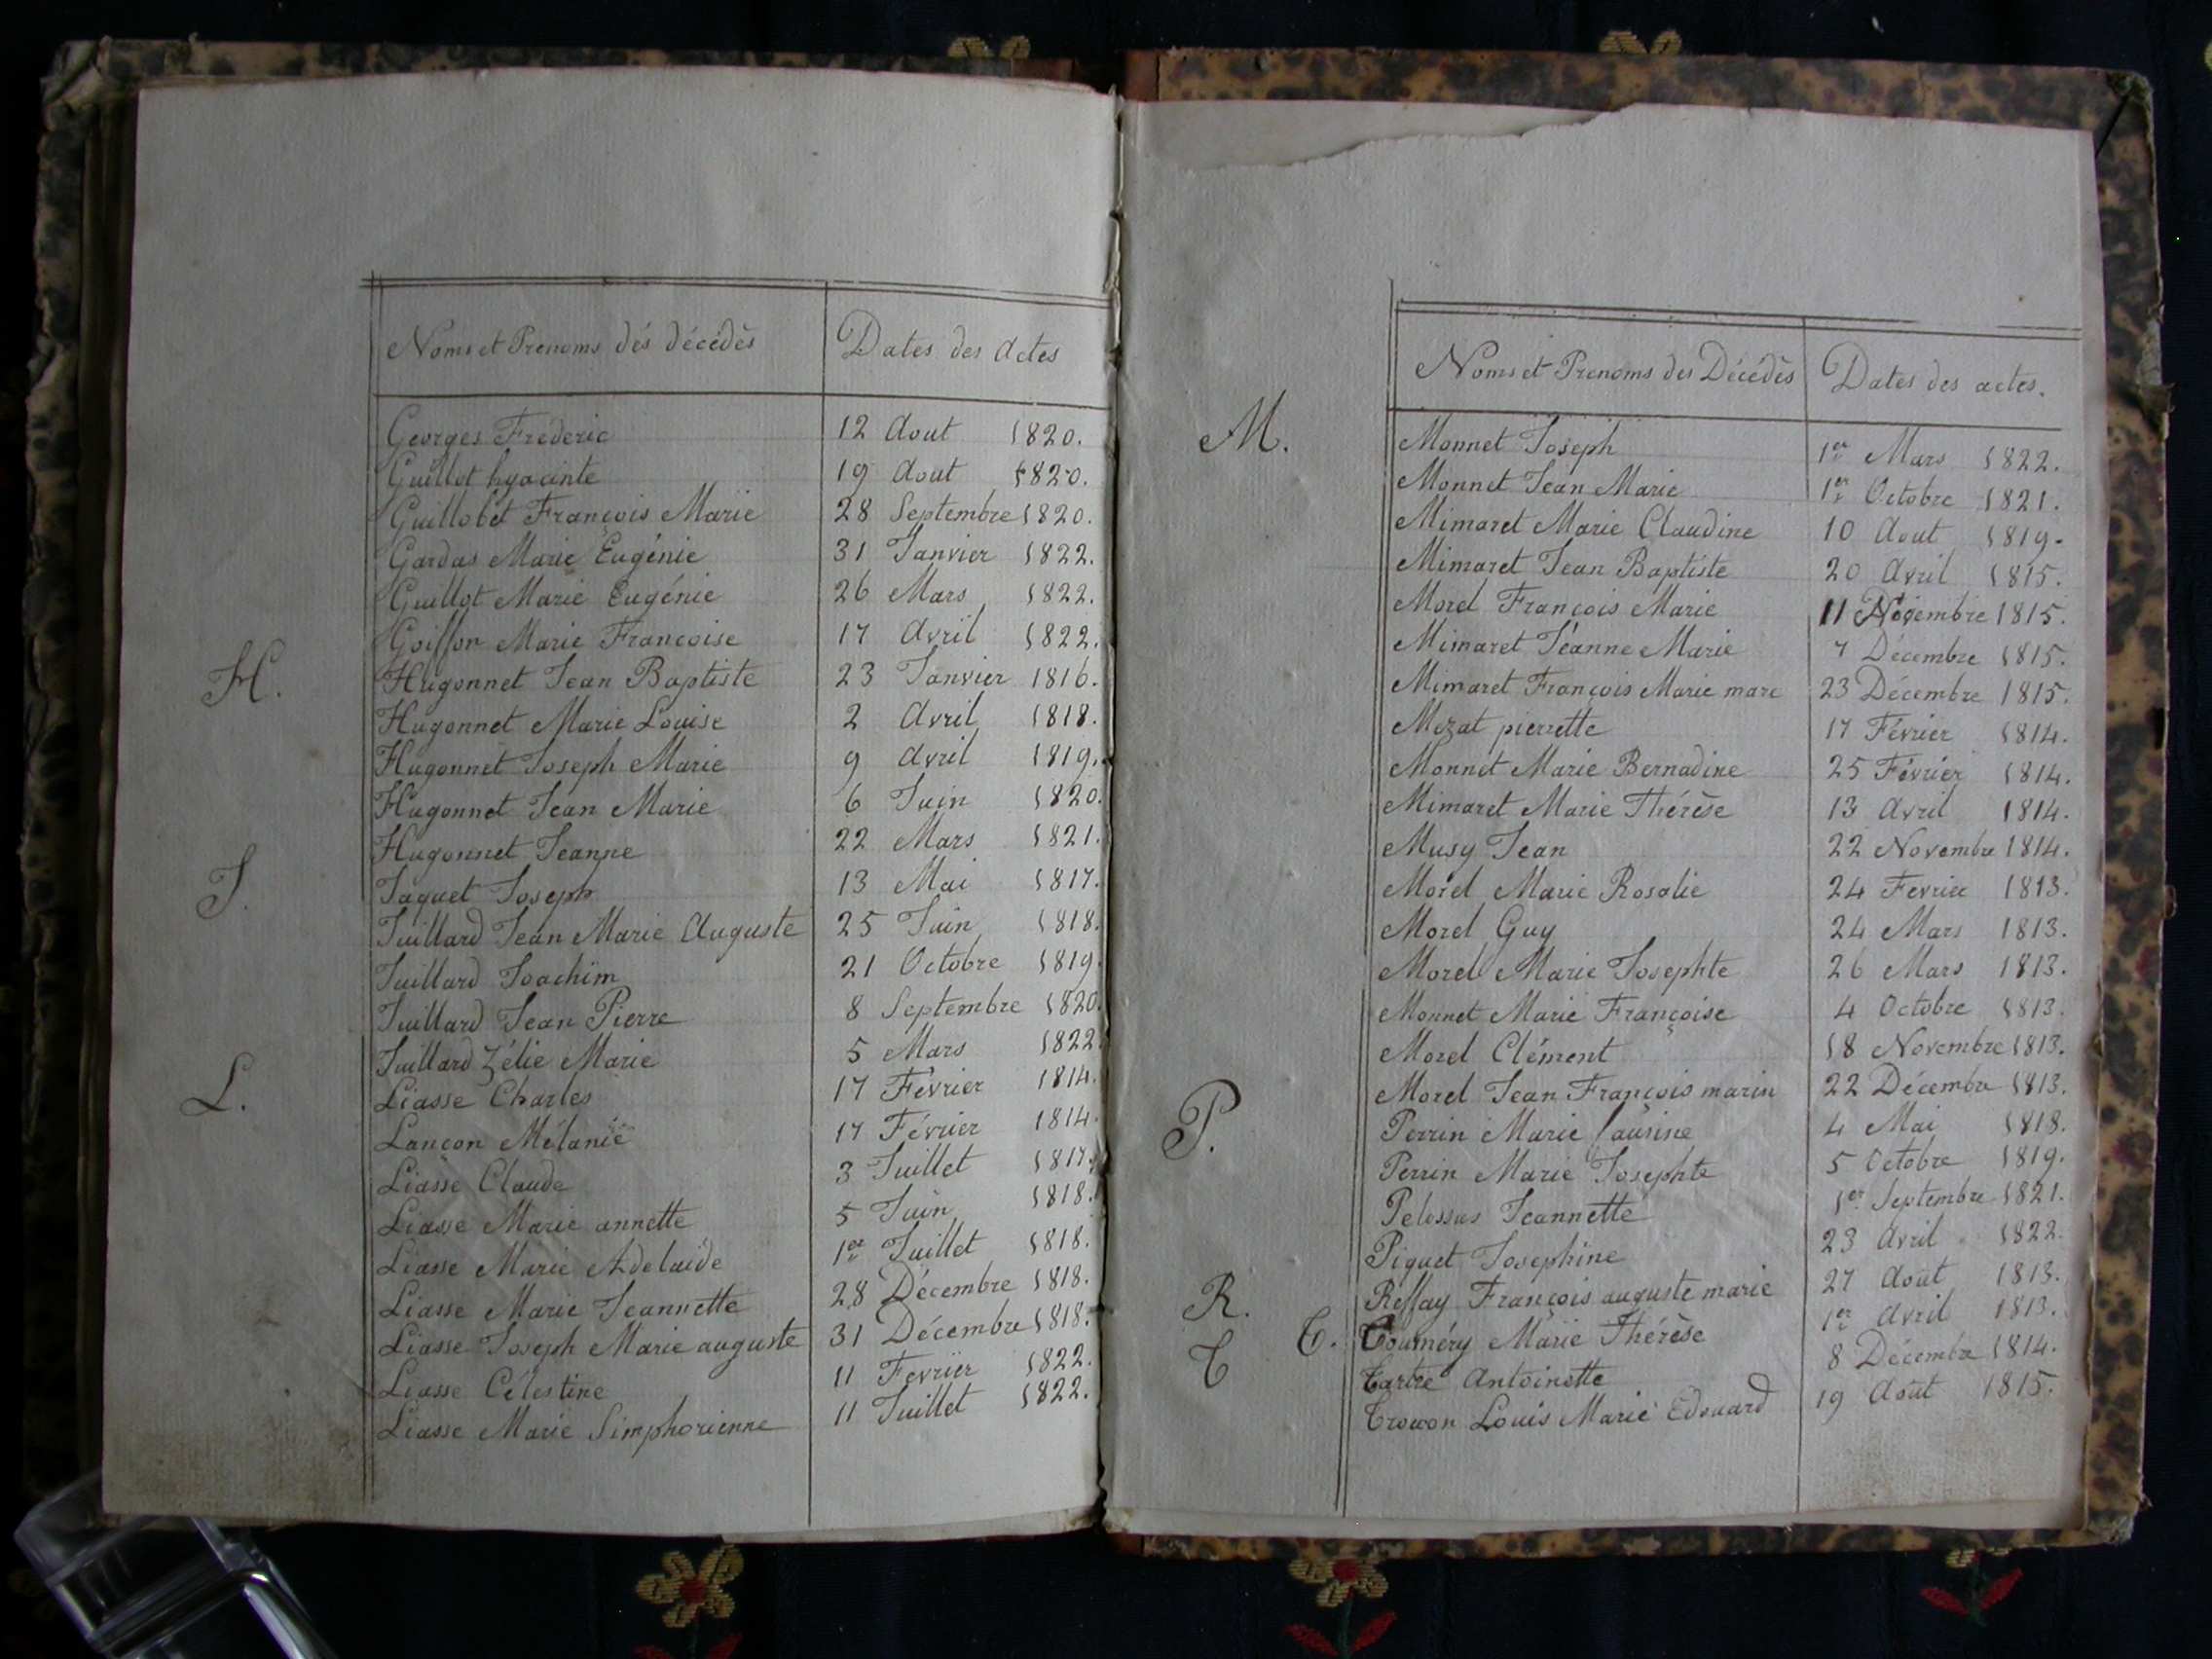 Noms et Prenoms dés décédés Dates des Actes
Georges Frederic 12 Aout 1820.
Guillot hyacinte 19 Aout 1820.
Guillobet François Marie 28 Septembre 1820.
Gardas Marie Eugénie 31 Janvier 1822.
Guillot Marie Eugénie 26 Mars 1822.
Goiffon Marie Françoise 17 Avril 1822.
H. Hugonnet Jean Baptiste 23 Janvier 1816.
Hugonnet Marie Louise 2 Avril 1818.
Hugonnet Joseph Marie 9 Avril 1819.
Hugonnet Jean Marie 6 Juin 1820.
Hugonnet Jeanne 22 Mars 1821.
J. Jaquet Joseph 13 Mai 1817.
Juillard Jean Marie Auguste 25 Juin 1818.
Juillard Joachim 21 Octobre 1819.
Juillard Jean Pierre 8 Septembre 1820.
Juillard Zélie Marie 5 Mars 1822.
L. Liasse Charles 17 Février 1814.
Lançon Mélanie 17 Février 1814.
Liasse Claude 3 Juillet 1817.
Liasse Marie annette 5 Juin 1818.
Liasse Marie Adelaide 1er Juillet 1818.
Liasse Marie Jeannette 28 Décembre 1818.
Liasse Joseph Marie auguste 31 Décembre 1818.
Liasse Célestine 11 Fevrier 1822.
Liasse Marie Simphorienne 11 Juillet 1822.
Noms et Prenoms des Décédés Dates des actes.
M. Monnet Joseph 1er Mars 1822.
Monnet Jean Marie 1er Octobre 1821.
Mimaret Marie Claudine 10 Aout 1819.
Mimaret Jean Baptiste 20 Avril 1815.
Morel François Marie 11 Novembre 1815.
Mimaret Jéanne Marie 7 Décembre 1815.
Mimaret François Marie marc 23 Décembre 1815.
Mozat pierrette 17 Février 1814.
Monnet Marie Bernadine 25 Février 1814.
Mimaret Marie Thérèse 13 Avril 1814.
Musy Jean 22 Novembre 1814.
Morel Marie Rosalie 24 Fevrier 1813.
Morel Guy 24 Mars 1813.
Morel Marie Josephte 26 Mars 1813.
Monnet Marie Françoise 4 Octobre 1813.
Morel Clément 18 Novembre 1813.
Morel Jean François marin 22 Décembre 1813.
P. Perrin Marie 4 Mai 1818.
Perrin Marie Josephte 5 Octobre 1819.
Pelossus Jeannette 1er Septembre 1821.
Piquet Josephine 23 Avril 1822.
R. Reffay François auguste marie 27 Août 1813.
T T. Tournéry Marie Thérèse 1er Avril 1813.
Tartre Antoinette 8 Décembre 1814.
Louis Marie Edouard 19 Août 1815.